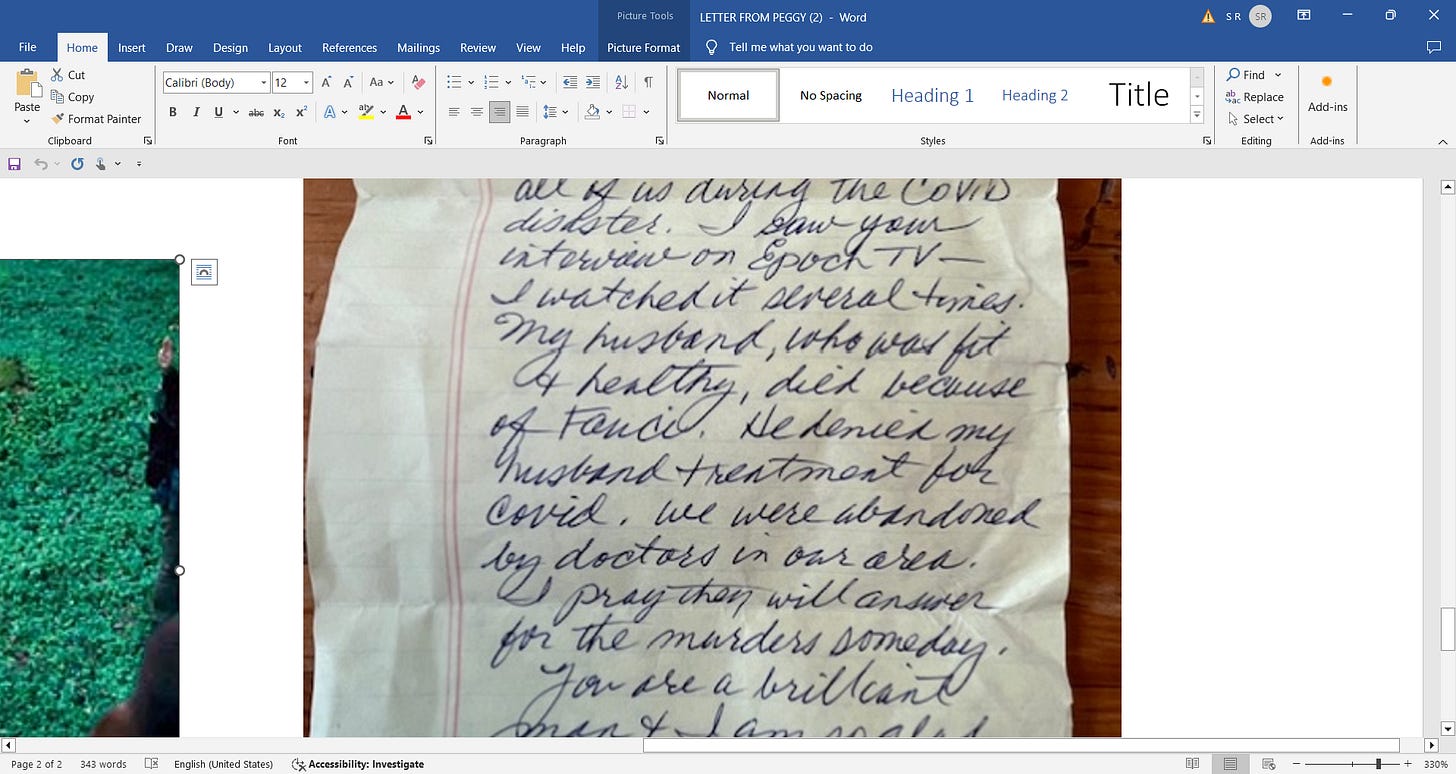 Picture Tools
LETTER FROM PEGGY (2) - Word
S R
SR
File
Home
Insert
Draw
Design
Layout
References
Mailings
Review
View
Help
Picture Format
Tell me what you want to do
Paste
Cut
Copy
Format Painter
Clipboard
Calibri (Body)
12
Font
Paragraph
Normal
No Spacing
Heading 1
Heading 2
Title
Styles
Find
Replace
Select
Editing
Add-ins
Add-ins
all of us during the COVID
disaster. I saw your
interview on Epoch TV—
I watched it several times.
My husband, who was fit
& healthy, died because
of Fauci. He denied my
husband treatment for
Covid. We were abandoned
by doctors in our area.
I pray they will answer
for the murders someday.
You are a brilliant
man & I am so glad
Page 2 of 2
343 words
English (United States)
Accessibility: Investigate
330%